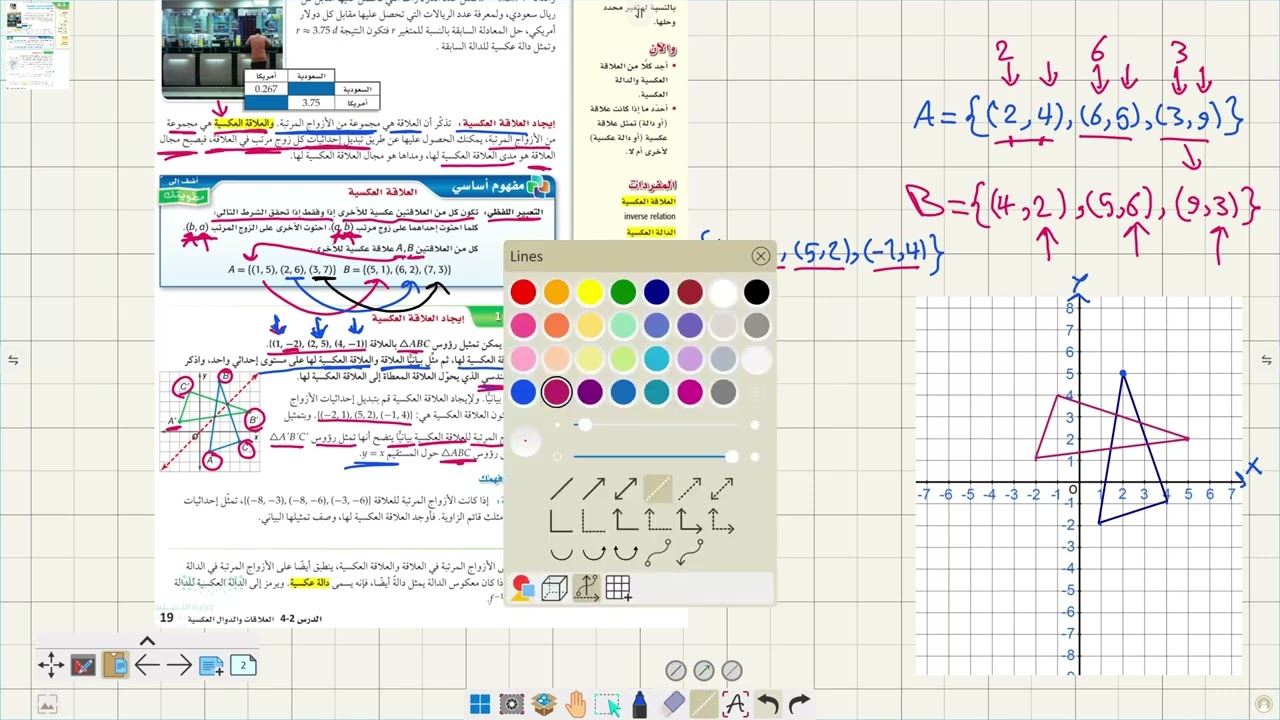 بالنسبة لمتغير محدد
وحلها.
ريال سعودي، ولمعرفة عدد الريالات التي تحصل عليها مقابل كل دولار
أمريكي، حل المعادلة السابقة بالنسبة للمتغير r فتكون النتيجة r = 3.75 d
وتمثل دالة عكسية للدالة السابقة.
السعودية أمريكا
السعودية 0.267
أمريكا 3.75
والآن
أجد كلًّا من العلاقة
العكسية والدالة
العكسية.
أحدد ما إذا كانت علاقة
(أو دالة) تمثل علاقة
عكسية (أو دالة عكسية)
لأخرى أم لا.
المفردات
العلاقة العكسية
inverse relation
الدالة العكسية
إيجاد العلاقة العكسية: تذكر أن العلاقة هي مجموعة من الأزواج المرتبة. والعلاقة العكسية هي مجموعة
من الأزواج المرتبة، يمكنك الحصول عليها عن طريق تبديل إحداثيات كل زوج مرتب في العلاقة، فيصبح مجال
العلاقة هو مدى العلاقة العكسية لها، ومداها هو مجال العلاقة العكسية لها.
مفهوم أساسي
العلاقة العكسية
أضف إلى
مطويتك
التعبير اللفظي: تكون كل من العلاقتين عكسية للأخرى إذا وفقط إذا تحقق الشرط التالي:
كلما احتوت إحداهما على زوج مرتب (a, b)، احتوت الأخرى على الزوج المرتب (b, a).
كل من العلاقتين A, B علاقة عكسية للأخرى.
A = {(1, 5), (2, 6), (3, 7)} B = {(5, 1), (6, 2), (7, 3)}
1
إيجاد العلاقة العكسية
يمكن تمثيل رؤوس △ABC بالعلاقة {(1, −2), (2, 5), (4, −1)}.
العكسية لها، ثم مثّل بيانيًّا العلاقة والعلاقة العكسية لها على مستوى إحداثي واحد، واذكر
الذي يحوّل العلاقة المعطاة إلى العلاقة العكسية لها.
بيانيًّا. ولإيجاد العلاقة العكسية قم بتبديل إحداثيات الأزواج
العلاقة العكسية هي: {(−2, 1), (5, 2), (−1, 4)}. وبتمثيل
المرتبة للعلاقة العكسية بيانيًّا يتضح أنها تمثل رؤوس △A'B'C'
رؤوس △ABC حول المستقيم y = x.
B
y
C'
A'
B'
O
x
C
A
إذا كانت الأزواج المرتبة للعلاقة {(−8, −3), (−8, −6), (−3, −6)}، تمثّل إحداثيات
مثلث قائم الزاوية. فأوجد العلاقة العكسية لها، وصف تمثيلها البياني.
الأزواج المرتبة في العلاقة والعلاقة العكسية، ينطبق أيضًا على الأزواج المرتبة في الدالة
إذا كان معكوس الدالة يمثل دالة أيضًا، فإنه يسمى دالة عكسية. ويرمز إلى الدالة العكسية للدالة
f⁻¹
وزارة التعليم
الدرس 2-4 العلاقات والدوال العكسية 19
Lines
2 6 3
A={(2,4),(6,5),(3,9)}
B={(4,2),(5,6),(9,3)}
(5,2),(-1,4)}
Y
8
7
6
5
4
3
2
1
-7 -6 -5 -4 -3 -2 -1 0 1 2 3 4 5 6 7
X
-1
-2
-3
-4
-5
-6
-7
-8
2